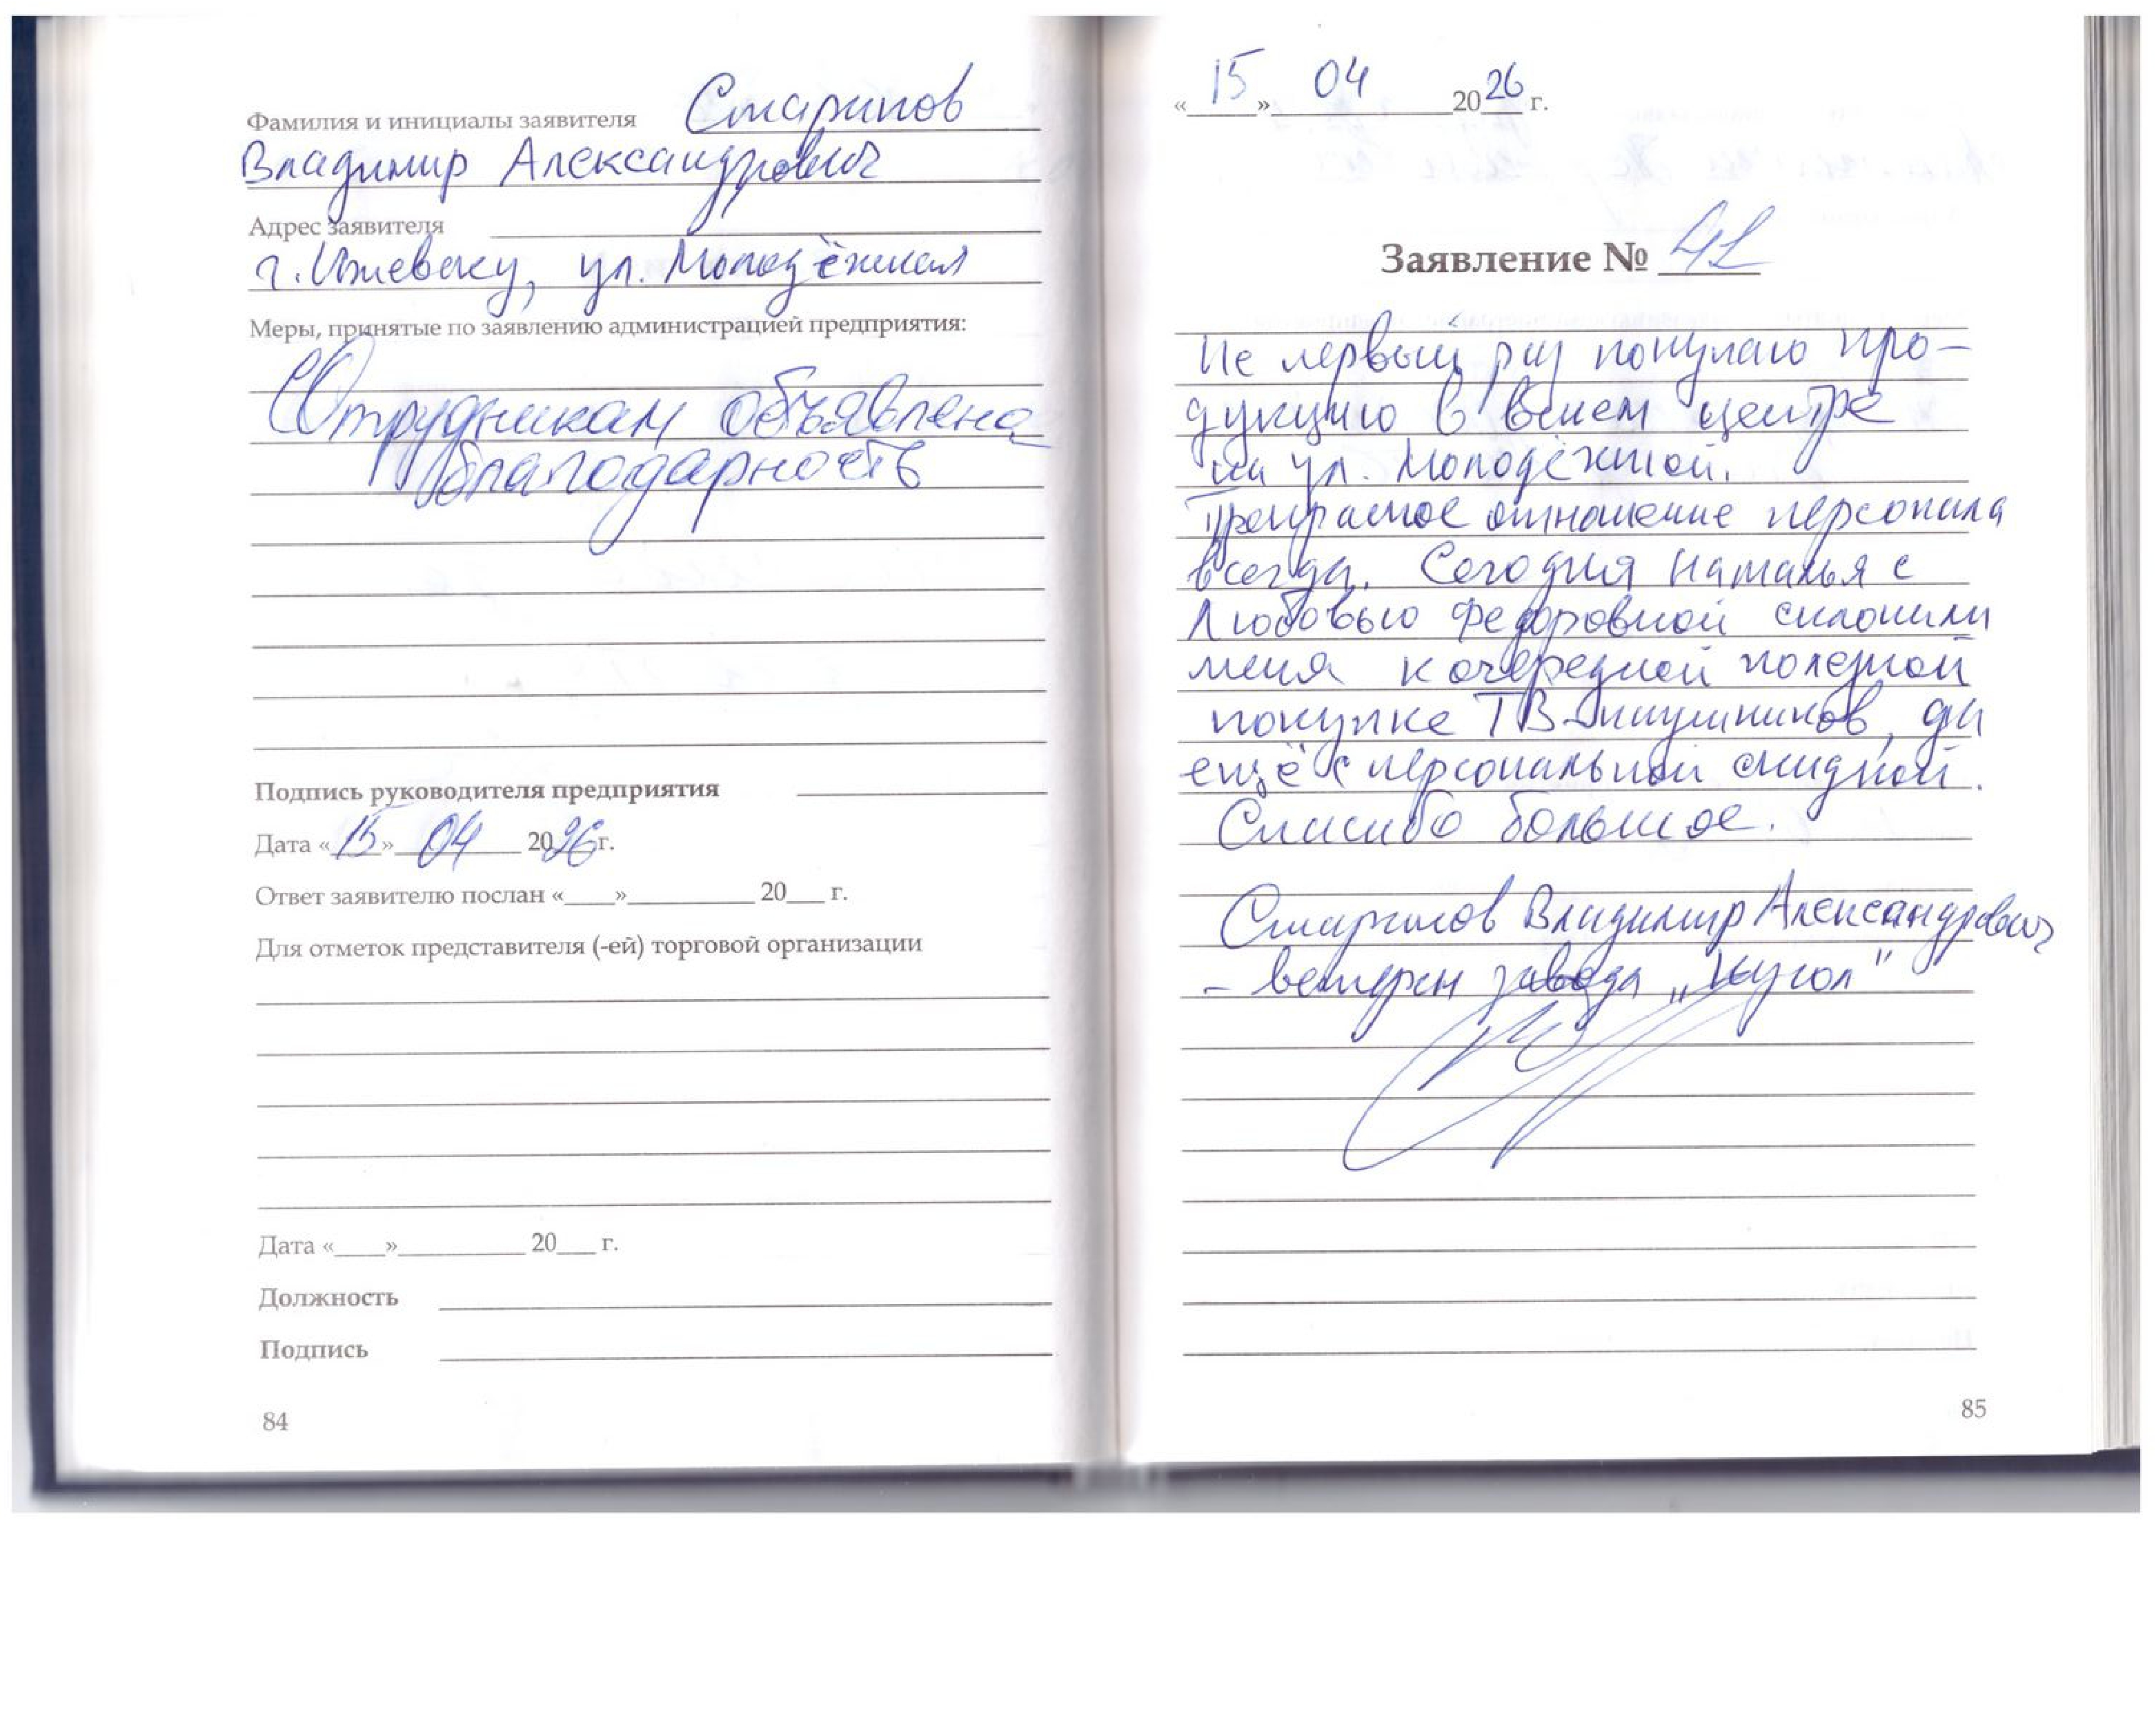 Фамилия и инициалы заявителя Старипов
Владимир Александрович
Адрес заявителя
г. Ижевску, ул. Молодёжная
Меры, принятые по заявлению администрацией предприятия:
Сотрудникам объявлена
благодарность
Подпись руководителя предприятия
Дата «15» 04 2026 г.
Ответ заявителю послан «____»__________ 20___ г.
Для отметок представителя (-ей) торговой организации
Дата «____»__________ 20___ г.
Должность
Подпись
84
«15» 04 2026 г.
Заявление № 42
Не первый раз покупаю про-
дукцию в вашем центре
на ул. Молодёжной.
Прекрасное отношение персонала
всегда. Сегодня Наталья с
Любовью Федоровной склонили
меня к очередной полезной
покупке ТВ-наушников, да
ещё с персональной скидкой.
Спасибо большое.
Владимир Александрович
- ветеран завода "Купол"
85